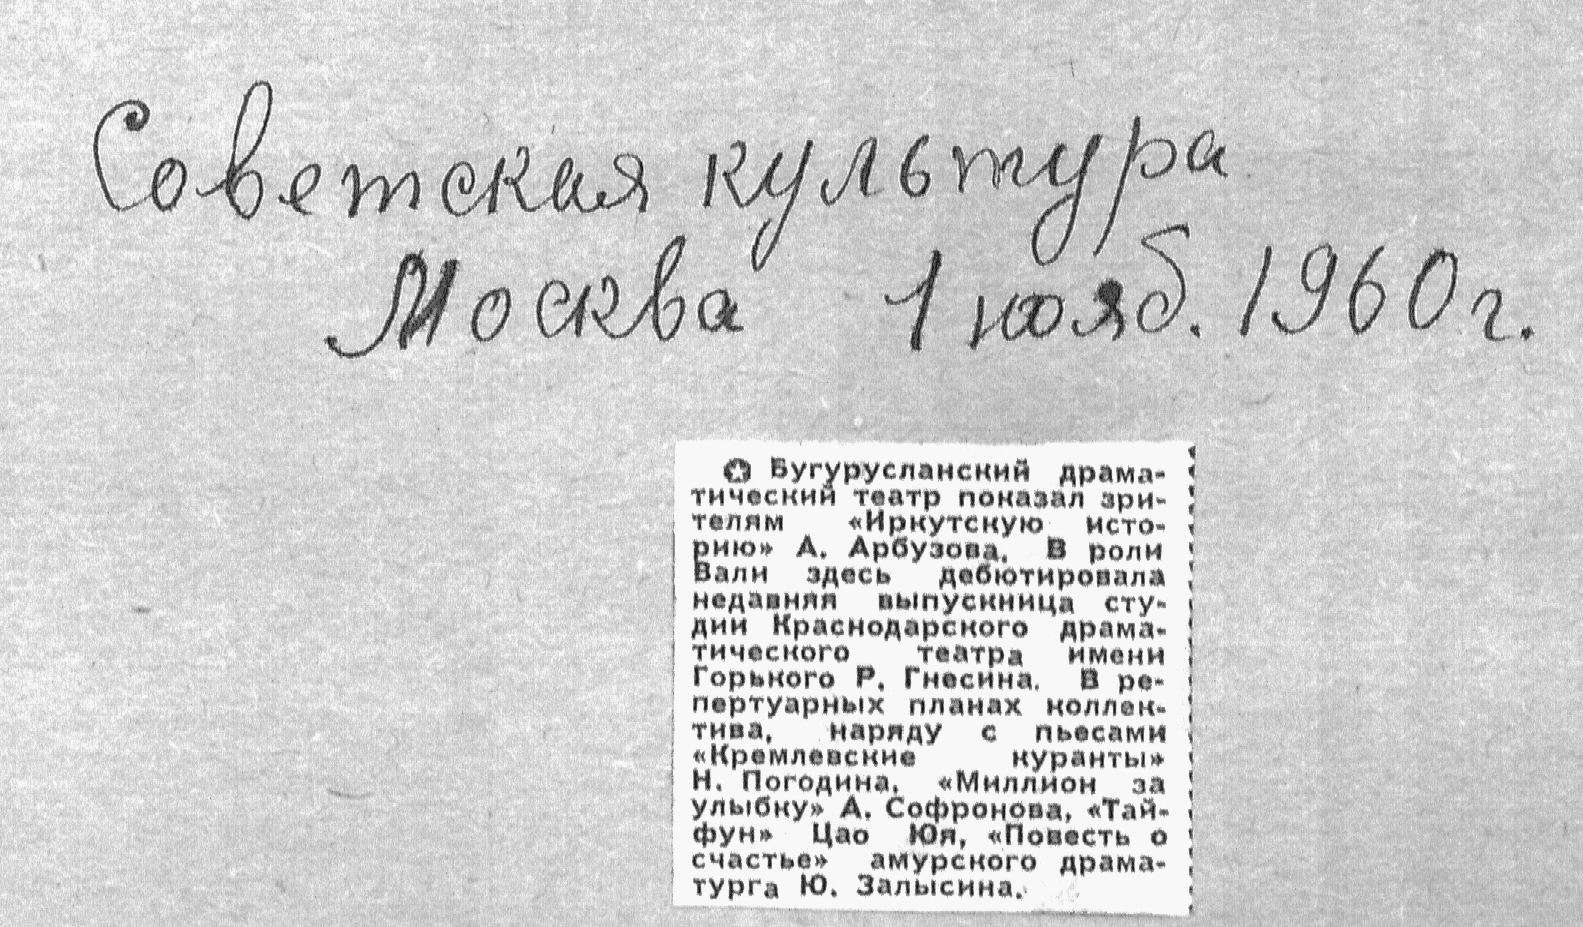 Советская культура
Москва 1 нояб. 1960 г.
✪ Бугурусланский драма-
тический театр показал зри-
телям «Иркутскую исто-
рию» А. Арбузова. В роли
Вали здесь дебютировала
недавняя выпускница сту-
дии Краснодарского драма-
тического театра имени
Горького Р. Гнесина. В ре-
пертуарных планах коллек-
тива, наряду с пьесами
«Кремлевские куранты»
Н. Погодина, «Миллион за
улыбку» А. Софронова, «Тай-
фун» Цао Юя, «Повесть о
счастье» амурского драма-
турга Ю. Залысина.